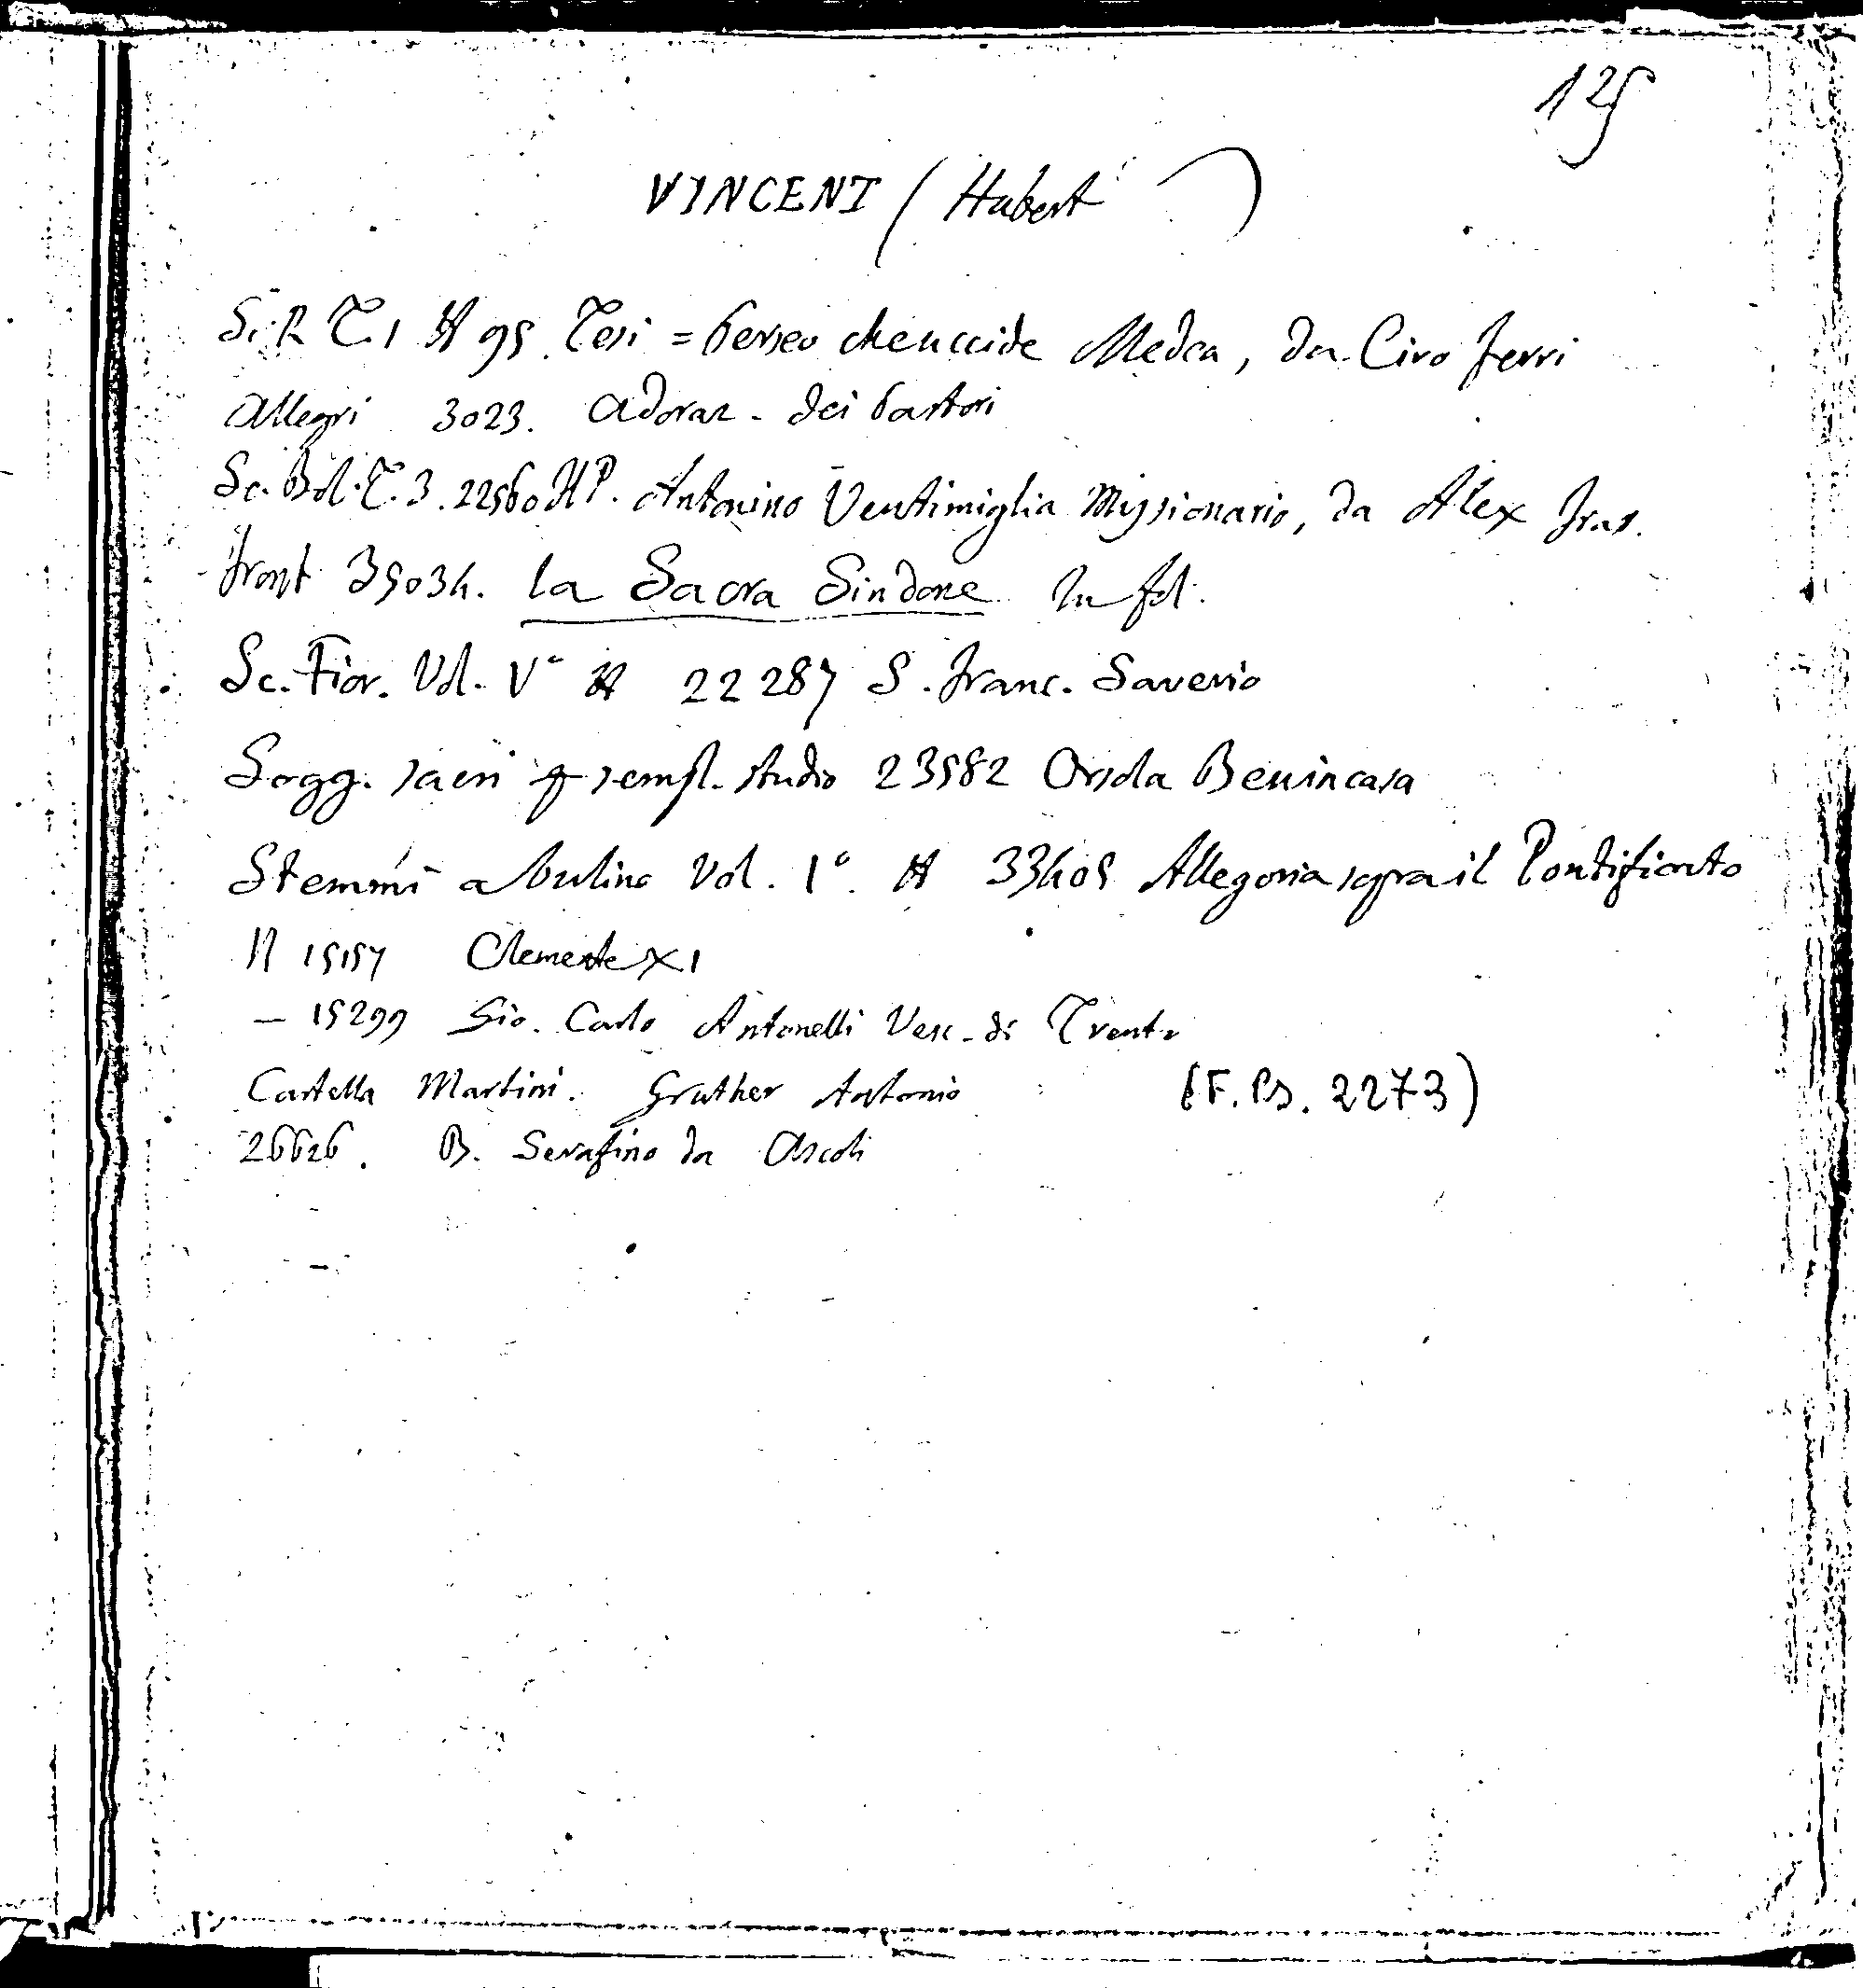 125
VINCENT (Hubert)
Sc. R T. 1 H 95. Tesi = Perseo che uccide Medea, da Ciro Ferri
Allegri 3023. Adoraz. dei Pastori
Sc. Bol. T. 3. 22560 HP. Antonino Ventimiglia Missionario, da Alex
Front 35034. La Sacra Sindone In fol.
Sc. Fior. Vol. V° H 22287 S. Franc. Saverio
Sogg. sacri studio 23582 Orsola Benincasa
Stemmi a bulino Vol. 1°. H 33405 Allegoria sopra il Pontificato
N 15157 Clemente XI
— 15299 Gio. Carlo Antonelli Vesc. di
Cartella Martini. Gruther Antonio (F.Ps. 2273)
26626. B. Serafino da Ascoli